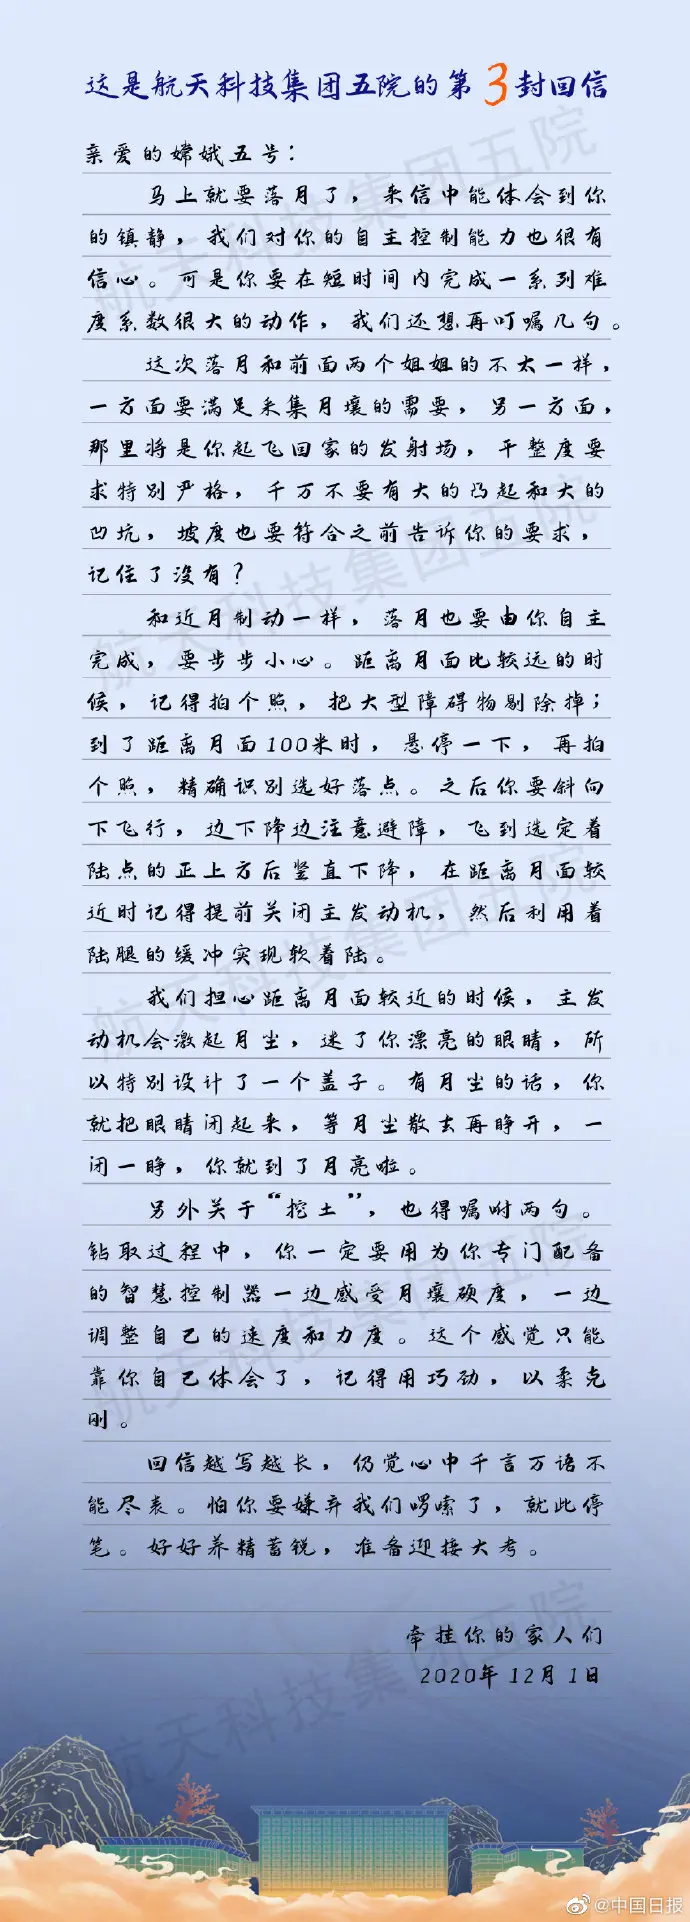 这是航天科技集团五院的第3封回信
亲爱的嫦娥五号：
马上就要落月了，来信中能体会到你
的镇静，我们对你的自主控制能力也很有
信心。可是你要在短时间内完成一系列难
度系数很大的动作，我们还想再叮嘱几句。
这次落月和前面两个姐姐的不太一样，
一方面要满足采集月壤的需要，另一方面，
那里将是你起飞回家的发射场，平整度要
求特别严格，千万不要有大的凸起和大的
凹坑，坡度也要符合之前告诉你的要求，
记住了没有？
和近月制动一样，落月也要由你自主
完成，要步步小心。距离月面比较远的时
候，记得拍个照，把大型障碍物剔除掉；
到了距离月面100米时，悬停一下，再拍
个照，精确识别选好落点。之后你要斜向
下飞行，边下降边注意避障，飞到选定着
陆点的正上方后竖直下降，在距离月面较
近时记得提前关闭主发动机，然后利用着
陆腿的缓冲实现软着陆。
我们担心距离月面较近的时候，主发
动机会激起月尘，迷了你漂亮的眼睛，所
以特别设计了一个盖子。有月尘的话，你
就把眼睛闭起来，等月尘散去再睁开，一
闭一睁，你就到了月亮啦。
另外关于“挖土”，也得嘱咐两句。
钻取过程中，你一定要用为你专门配备
的智慧控制器一边感受月壤硬度，一边
调整自己的速度和力度。这个感觉只能
靠你自己体会了，记得用巧劲，以柔克
刚。
回信越写越长，仍觉心中千言万语不
能尽表。怕你要嫌弃我们啰嗦了，就此停
笔。好好养精蓄锐，准备迎接大考。
牵挂你的家人们
2020年12月1日
航天科技集团五院
航天科技集团五院
航天科技集团五院
航天科技集团五院
航天科技集团五院
@中国日报